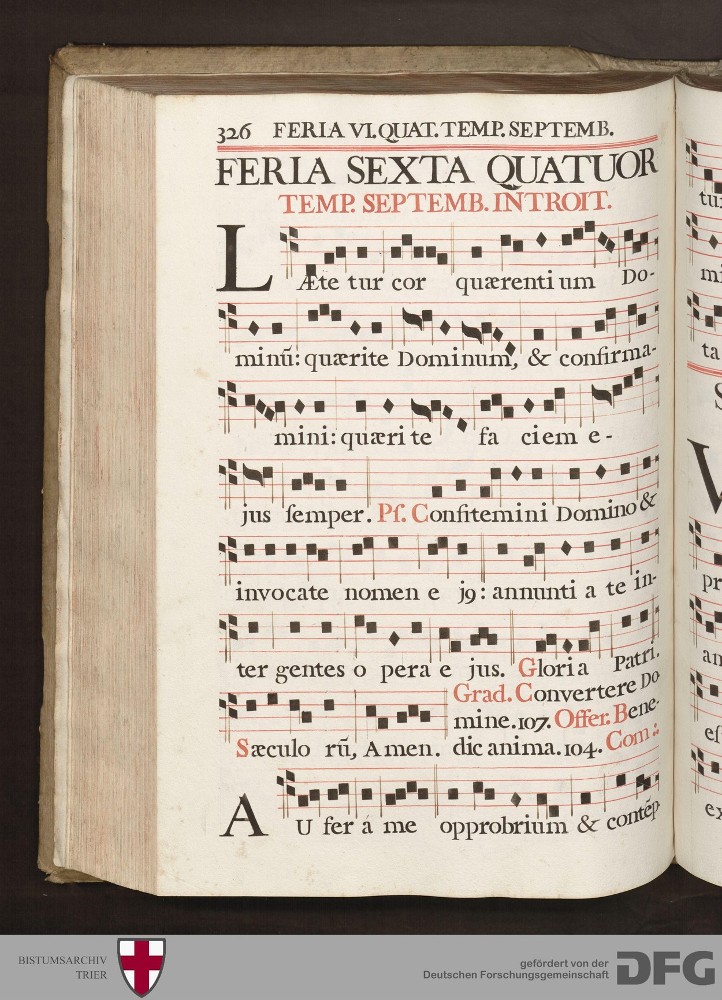 326 FERIA VI. QUAT. TEMP. SEPTEMB.
FERIA SEXTA QUATUOR
TEMP. SEPTEMB. INTROIT.
LÆte tur cor quærenti um Do-
minū: quærite Dominum, & confirma-
mini: quæri te fa ciem e-
jus ſemper. Pſ. Confitemini Domino &
invocate nomen e j9: annunti a te in-
ter gentes o pera e jus. Gloria Patri.
Sæculo rū, Amen.
Grad. Convertere Do
mine. 107. Offer. Bene-
dic anima. 104. Com:.
AU fer á me opprobrium & contēp-
tu
mi
ta
V
pr
an
eſ
ex
BISTUMSARCHIV
TRIER
gefördert von der
Deutschen Forschungsgemeinschaft
DFG